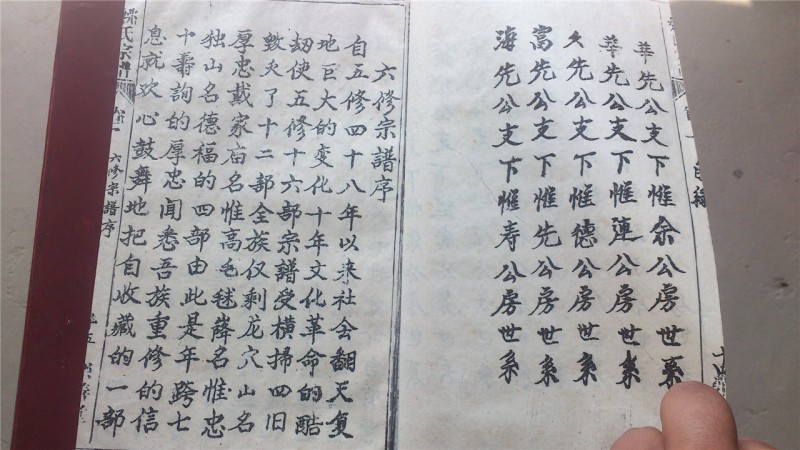 華先公支下惟余公房世系
華先公支下惟蓮公房世系
久先公支下惟德公房世系
富先公支下惟先公房世系
海先公支下惟寿公房世系
六修宗譜序
自五修四十八年以来社会翻天复
地巨大的变化十年文化革命的酷
劫使五修十六部宗譜受横掃四旧
毀灭了十二部全族仅剩龙穴山名
厚忠戴家庙名惟高毛毬嶐名惟忠
独山名德福的四部由此是年跨七
十壽詢的厚忠闻悉吾族重修的信
息就欢心鼓舞地把自收藏的一部
氏宗譜
六修宗譜序